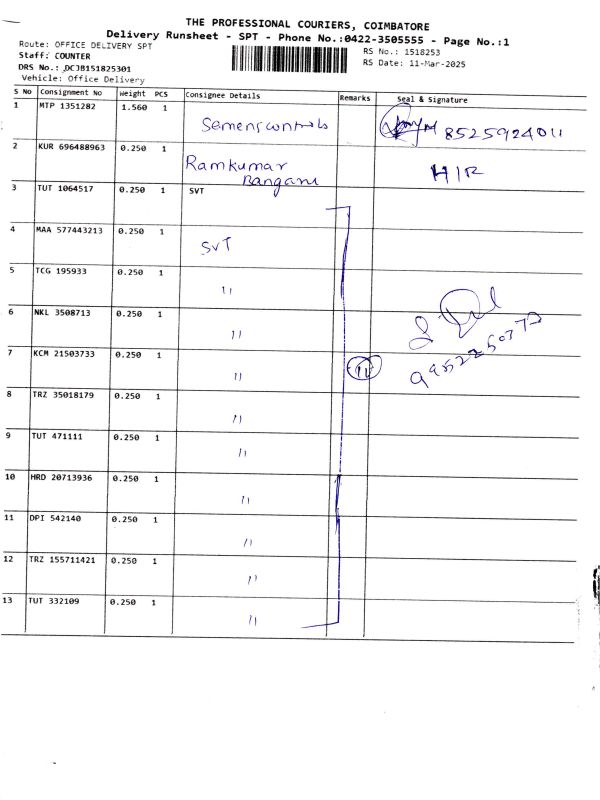 THE PROFESSIONAL COURIERS, COIMBATORE
Delivery Runsheet - SPT - Phone No.:0422-3505555 - Page No.:1
Route: OFFICE DELIVERY SPT
RS No.: 1518253
Staff: COUNTER
RS Date: 11-Mar-2025
DRS No.: DCJB151825301
Vehicle: Office Delivery
S No Consignment No Weight PCS Consignee Details Remarks Seal & Signature
1 MTP 1351282 1.560 1 Semenscontrols 8525924011
2 KUR 696488963 0.250 1 Ramkumar
Rangani HIR
3 TUT 1064517 0.250 1 SVT
4 MAA 577443213 0.250 1 SVT
5 TCG 195933 0.250 1 11
6 NKL 3508713 0.250 1 11
7 KCM 21503733 0.250 1 11 11
8 TRZ 35018179 0.250 1 11
9 TUT 471111 0.250 1 11
10 HRD 20713936 0.250 1 11
11 DPI 542140 0.250 1 11
12 TRZ 155711421 0.250 1 11
13 TUT 332109 0.250 1 11